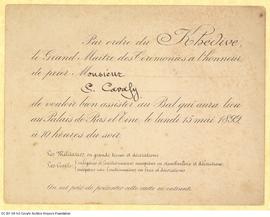 Par ordre du Khédive,
le Grand Maître des Cérémonies a l'honneur
de prier Monsieur
C. Cavafy
de vouloir bien assister au Bal qui aura lieu
au Palais de Ras el Tine le lundi 15 mai 1892
à 10 heures du soir.
Les Militaires en grande tenue et décorations
Les Civils
On est prié de présenter cette carte en entrant.